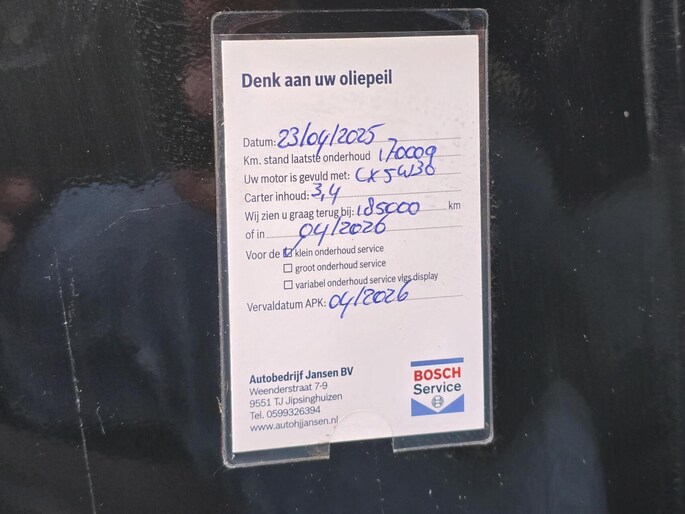 Denk aan uw oliepeil
Datum: 23/04/2025
Km. stand laatste onderhoud 170009
Uw motor is gevuld met: CX5W30
Carter inhoud: 3,4
Wij zien u graag terug bij: 185000 km
of in 04/2026
Voor de klein onderhoud service
groot onderhoud service
variabel onderhoud service vlgs display
Vervaldatum APK: 04/2026
Autobedrijf Jansen BV
Weenderstraat 7-9
9551 TJ Jipsinghuizen
Tel. 0599326394
www.autohjjansen.nl
BOSCH
Service